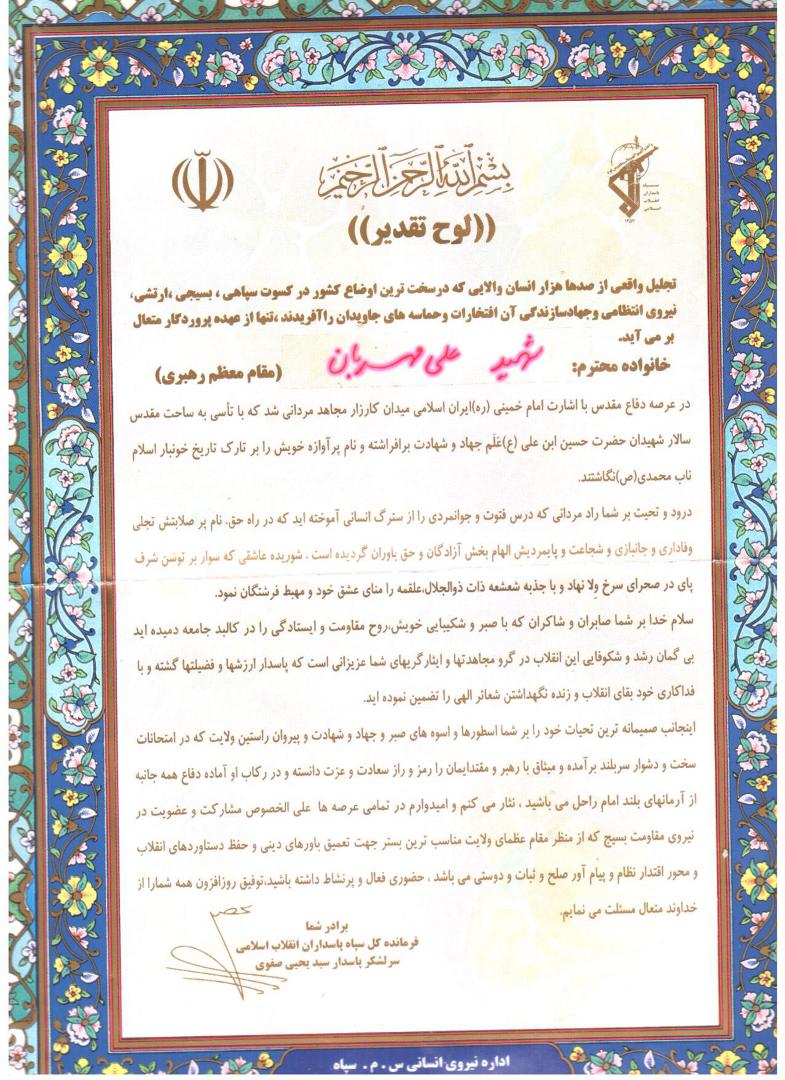 بسم الله الرحمن الرحیم
سپاه
پاسداران
انقلاب
اسلامی
((لوح تقدیر))
تجلیل واقعی از صدها هزار انسان والایی که درسخت ترین اوضاع کشور در کسوت سپاهی ، بسیجی ،ارتشی،
نیروی انتظامی وجهادسازندگی آن افتخارات وحماسه های جاویدان راآفریدند ،تنها از عهده پروردگار متعال
بر می آید.
(مقام معظم رهبری)
خانواده محترم: شهید علی مهربان
در عرصه دفاع مقدس با اشارت امام خمینی (ره)ایران اسلامی میدان کارزار مجاهد مردانی شد که با تأسی به ساحت مقدس
سالار شهیدان حضرت حسین ابن علی (ع)عَلَم جهاد و شهادت برافراشته و نام پرآوازه خویش را بر تارک تاریخ خونبار اسلام
ناب محمدی(ص)نگاشتند.
درود و تحیت بر شما راد مردانی که درس فتوت و جوانمردی را از سترگ انسانی آموخته اید که در راه حق، نام پر صلابتش تجلی
وفاداری و جانبازی و شجاعت و پایمردیش الهام بخش آزادگان و حق باوران گردیده است ، شوریده عاشقی که سوار بر توسن شرف
پای در صحرای سرخ ولا نهاد و با جذبه شعشعه ذات ذوالجلال،علقمه را منای عشق خود و مهبط فرشتگان نمود.
سلام خدا بر شما صابران و شاکران که با صبر و شکیبایی خویش،روح مقاومت و ایستادگی را در کالبد جامعه دمیده اید
بی گمان رشد و شکوفایی این انقلاب در گرو مجاهدتها و ایثارگریهای شما عزیزانی است که پاسدار ارزشها و فضیلتها گشته و با
فداکاری خود بقای انقلاب و زنده نگهداشتن شعائر الهی را تضمین نموده اید.
اینجانب صمیمانه ترین تحیات خود را بر شما اسطورها و اسوه های صبر و جهاد و شهادت و پیروان راستین ولایت که در امتحانات
سخت و دشوار سربلند برآمده و میثاق با رهبر و مقتدایمان را رمز و راز سعادت و عزت دانسته و در رکاب او آماده دفاع همه جانبه
از آرمانهای بلند امام راحل می باشید ، نثار می کنم و امیدوارم در تمامی عرصه ها علی الخصوص مشارکت و عضویت در
نیروی مقاومت بسیج که از منظر مقام عظمای ولایت مناسب ترین بستر جهت تعمیق باورهای دینی و حفظ دستاوردهای انقلاب
و محور اقتدار نظام و پیام آور صلح و ثبات و دوستی می باشد ، حضوری فعال و پرنشاط داشته باشید،توفیق روزافزون همه شمارا از
خداوند متعال مسئلت می نمایم.
برادر شما
فرمانده کل سپاه پاسداران انقلاب اسلامی
سرلشکر پاسدار سید یحیی صفوی
اداره نیروی انسانی س . م . سپاه